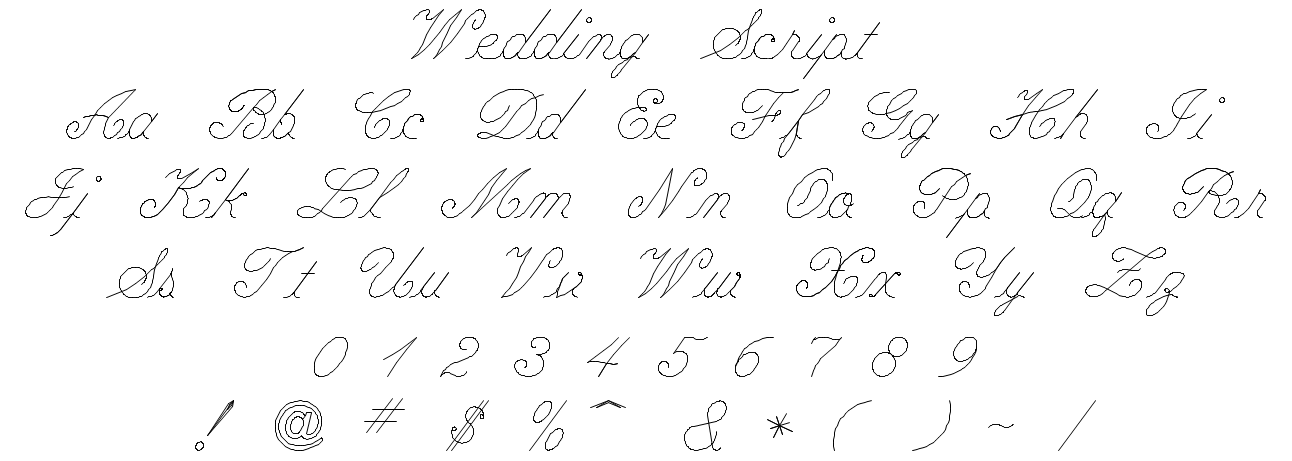 Wedding Script
Aa Bb Cc Dd Ee Ff Gg Hh Ii
Jj Kk Ll Mm Nn Oo Pp Qq Rr
Ss Tt Uu Vv Ww Xx Yy Zz
0 1 2 3 4 5 6 7 8 9
! @ # $ % ^ & * ( ) ~ /